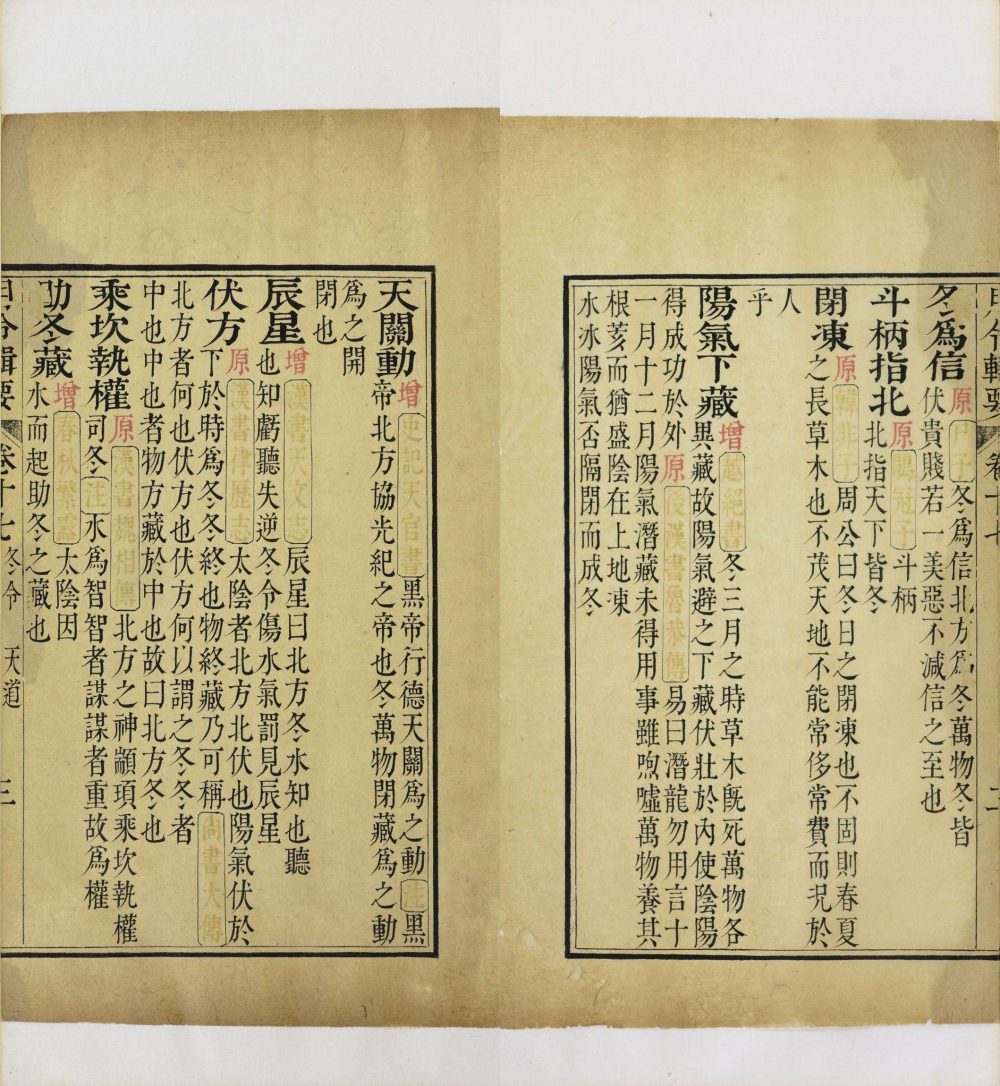 月令輯要 卷十七 二
冬爲信
原尸子冬爲信北方爲冬萬物冬皆
伏貴賤若一美惡不減信之至也
斗柄指北
原鶡冠子斗柄
北指天下皆冬
閉凍
原韓非子周公曰冬日之閉凍也不固則春夏
之長草木也不茂天地不能常侈常費而況於
人
乎
陽氣下藏
增越絕書冬三月之時草木旣死萬物各
異藏故陽氣避之下藏伏壯於內使陰陽
得成功於外原後漢書魯恭傳易曰潛龍勿用言十
一月十二月陽氣潛藏未得用事雖煦噓萬物養其
根荄而猶盛陰在上地凍
水冰陽氣否隔閉而成冬
天關動
增史記天官書黑帝行德天關爲之動注黑
帝北方協光紀之帝也冬萬物閉藏爲之動
爲之開
閉也
辰星
增漢書天文志辰星曰北方冬水知也聽
也知虧聽失逆冬令傷水氣罰見辰星
伏方
原漢書律歷志太陰者北方北伏也陽氣伏於
下於時爲冬冬終也物終藏乃可稱尚書大傳
北方者何也伏方也伏方何以謂之冬冬者
中也中也者物方藏於中也故曰北方冬也
乘坎執權
原漢書魏相傳北方之神顓頊乘坎執權
可冬注水爲智智者謀謀者重故爲權
助冬藏
增春秋繁露太陰因
水而起助冬之藏也
月令輯要 卷十七 冬令 天道 三